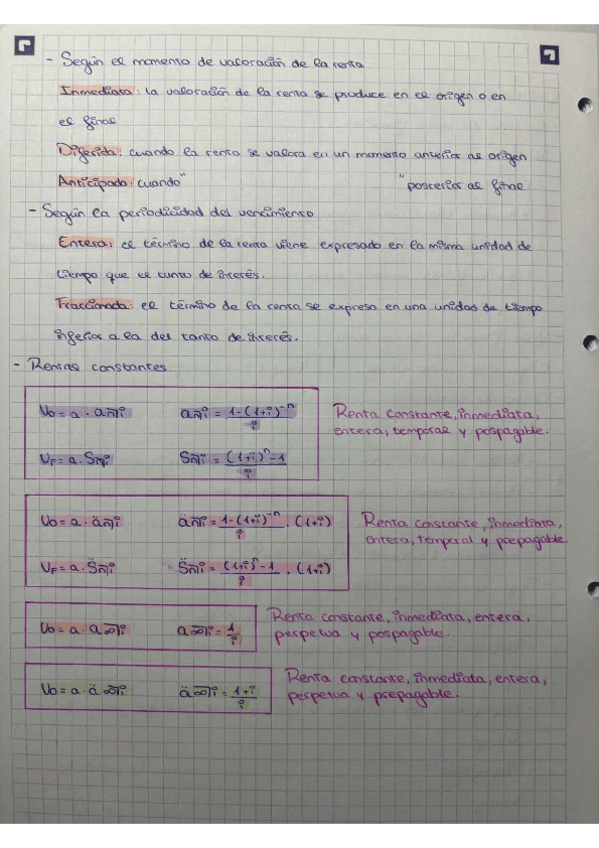 - Según el momento de valoración de la renta
Inmediata: la valoración de la renta se produce en el origen o en
el final
Diferida: cuando la renta se valora en un momento anterior al origen
Anticipada: cuando " " posterior al final
- Según la periodicidad del vencimiento
Entera: el término de la renta viene expresado en la misma unidad de
tiempo que el tanto de interés.
Fraccionada: el término de la renta se expresa en una unidad de tiempo
inferior a la del tanto de interés.
- Rentas constantes
V₀ = a · a n̅| i    a n̅| i = 1-(1+i)⁻ⁿ / i    Renta constante, inmediata,
entera, temporal y pospagable.
V_F = a · S n̅| i    S n̅| i = (1+i)ⁿ-1 / i
V₀ = a · ä n̅| i    ä n̅| i = 1-(1+i)⁻ⁿ / i · (1+i)    Renta constante, inmediata,
entera, temporal y prepagable.
V_F = a · S̈ n̅| i    S̈ n̅| i = (1+i)ⁿ-1 / i · (1+i)
Renta constante, inmediata, entera,
V₀ = a · a ∞̅| i    a ∞̅| i = 1 / i    perpetua y pospagable.
Renta constante, inmediata, entera,
V₀ = a · ä ∞̅| i    ä ∞̅| i = 1+i / i    perpetua y prepagable.